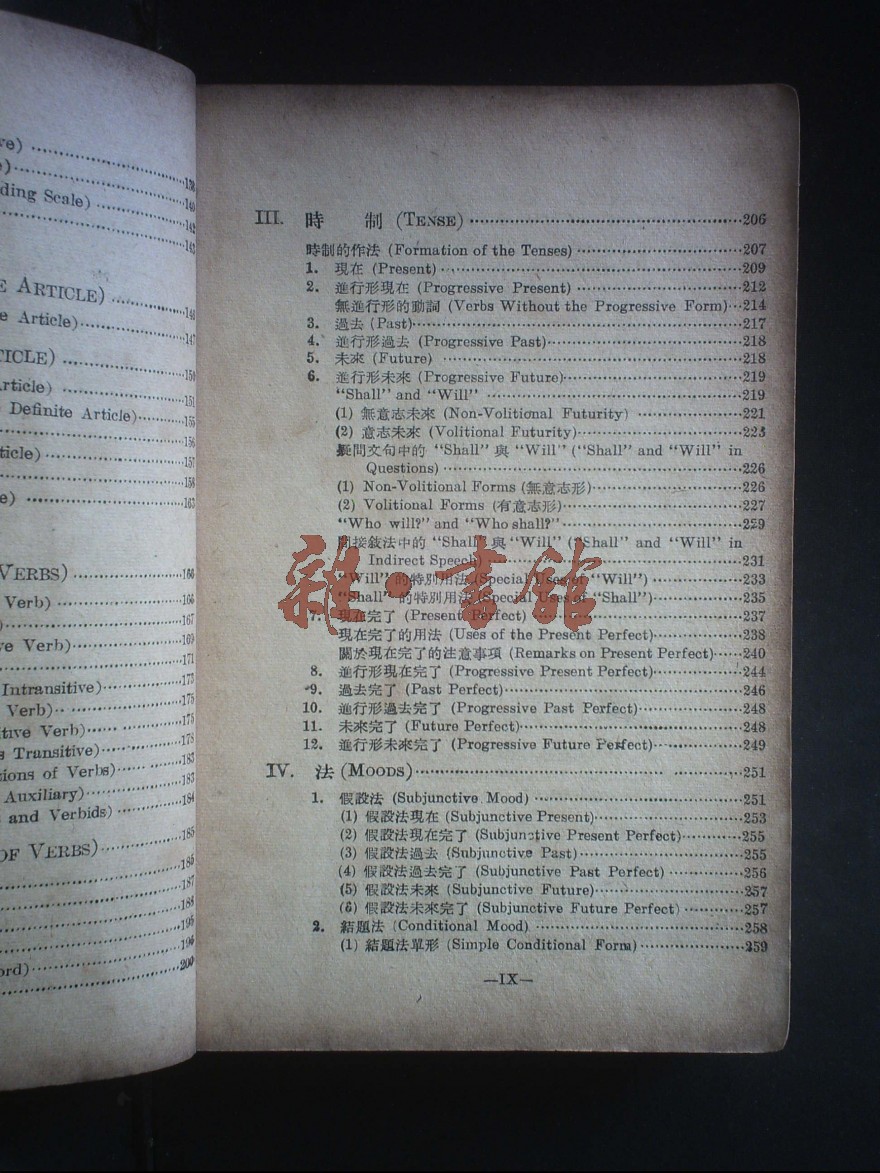 re)
e)
138
ding Scale)
140
142
143
E ARTICLE)
146
e Article)
147
TICLE)
150
Article)
151
Definite Article)
155
156
ticle)
157
158
e)
163
VERBS)
166
Verb)
166
167
ve Verb)
169
171
Intransitive)
173
Verb)
175
itive Verb)
175
s Transitive)
178
ions of Verbs)
183
Auxiliary)
183
s and Verbids)
184
OF VERBS)
185
186
187
188
195
196
ord)
200
III. 時 制 (TENSE) 206
時制的作法 (Formation of the Tenses) 207
1. 現在 (Present) 209
2. 進行形現在 (Progressive Present) 212
無進行形的動詞 (Verbs Without the Progressive Form) 214
3. 過去 (Past) 217
4. 進行形過去 (Progressive Past) 218
5. 未來 (Future) 218
6. 進行形未來 (Progressive Future) 219
"Shall" and "Will" 219
(1) 無意志未來 (Non-Volitional Futurity) 221
(2) 意志未來 (Volitional Futurity) 223
疑問文句中的 "Shall" 與 "Will" ("Shall" and "Will" in
Questions) 226
(1) Non-Volitional Forms (無意志形) 226
(2) Volitional Forms (有意志形) 227
"Who will?" and "Who shall?" 229
間接敍法中的 "Shall" 與 "Will" ("Shall" and "Will" in
Indirect Speech) 231
"Will" 的特別用法 (Special Uses of "Will") 233
"Shall" 的特別用法 (Special Uses of "Shall") 235
7. 現在完了 (Present Perfect) 237
現在完了的用法 (Uses of the Present Perfect) 238
關於現在完了的注意事項 (Remarks on Present Perfect) 240
8. 進行形現在完了 (Progressive Present Perfect) 244
9. 過去完了 (Past Perfect) 246
10. 進行形過去完了 (Progressive Past Perfect) 248
11. 未來完了 (Future Perfect) 248
12. 進行形未來完了 (Progressive Future Perfect) 249
IV. 法 (MOODS) 251
1. 假設法 (Subjunctive Mood) 251
(1) 假設法現在 (Subjunctive Present) 253
(2) 假設法現在完了 (Subjunctive Present Perfect) 255
(3) 假設法過去 (Subjunctive Past) 255
(4) 假設法過去完了 (Subjunctive Past Perfect) 256
(5) 假設法未來 (Subjunctive Future) 257
(6) 假設法未來完了 (Subjunctive Future Perfect) 257
2. 結題法 (Conditional Mood) 258
(1) 結題法單形 (Simple Conditional Form) 259
—IX—
雜·書館